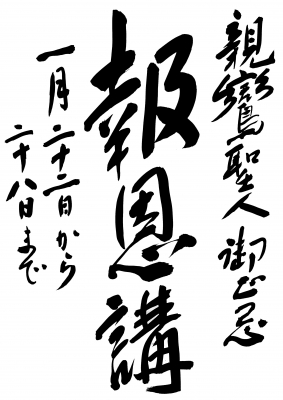 親鸞聖人 御正忌
報恩講
一月二十二日から
二十八日まで